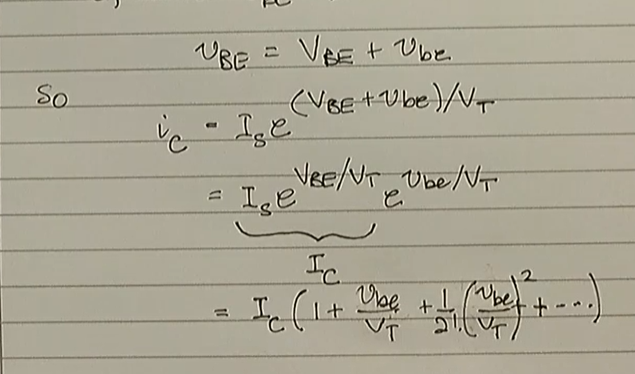 v_BE = V_BE + v_be
So
i_C = I_s e^(V_BE + v_be)/V_T
= I_s e^V_BE/V_T e^v_be/V_T
I_C
= I_C (1 + v_be/V_T + 1/2! (v_be/V_T)^2 + ....)